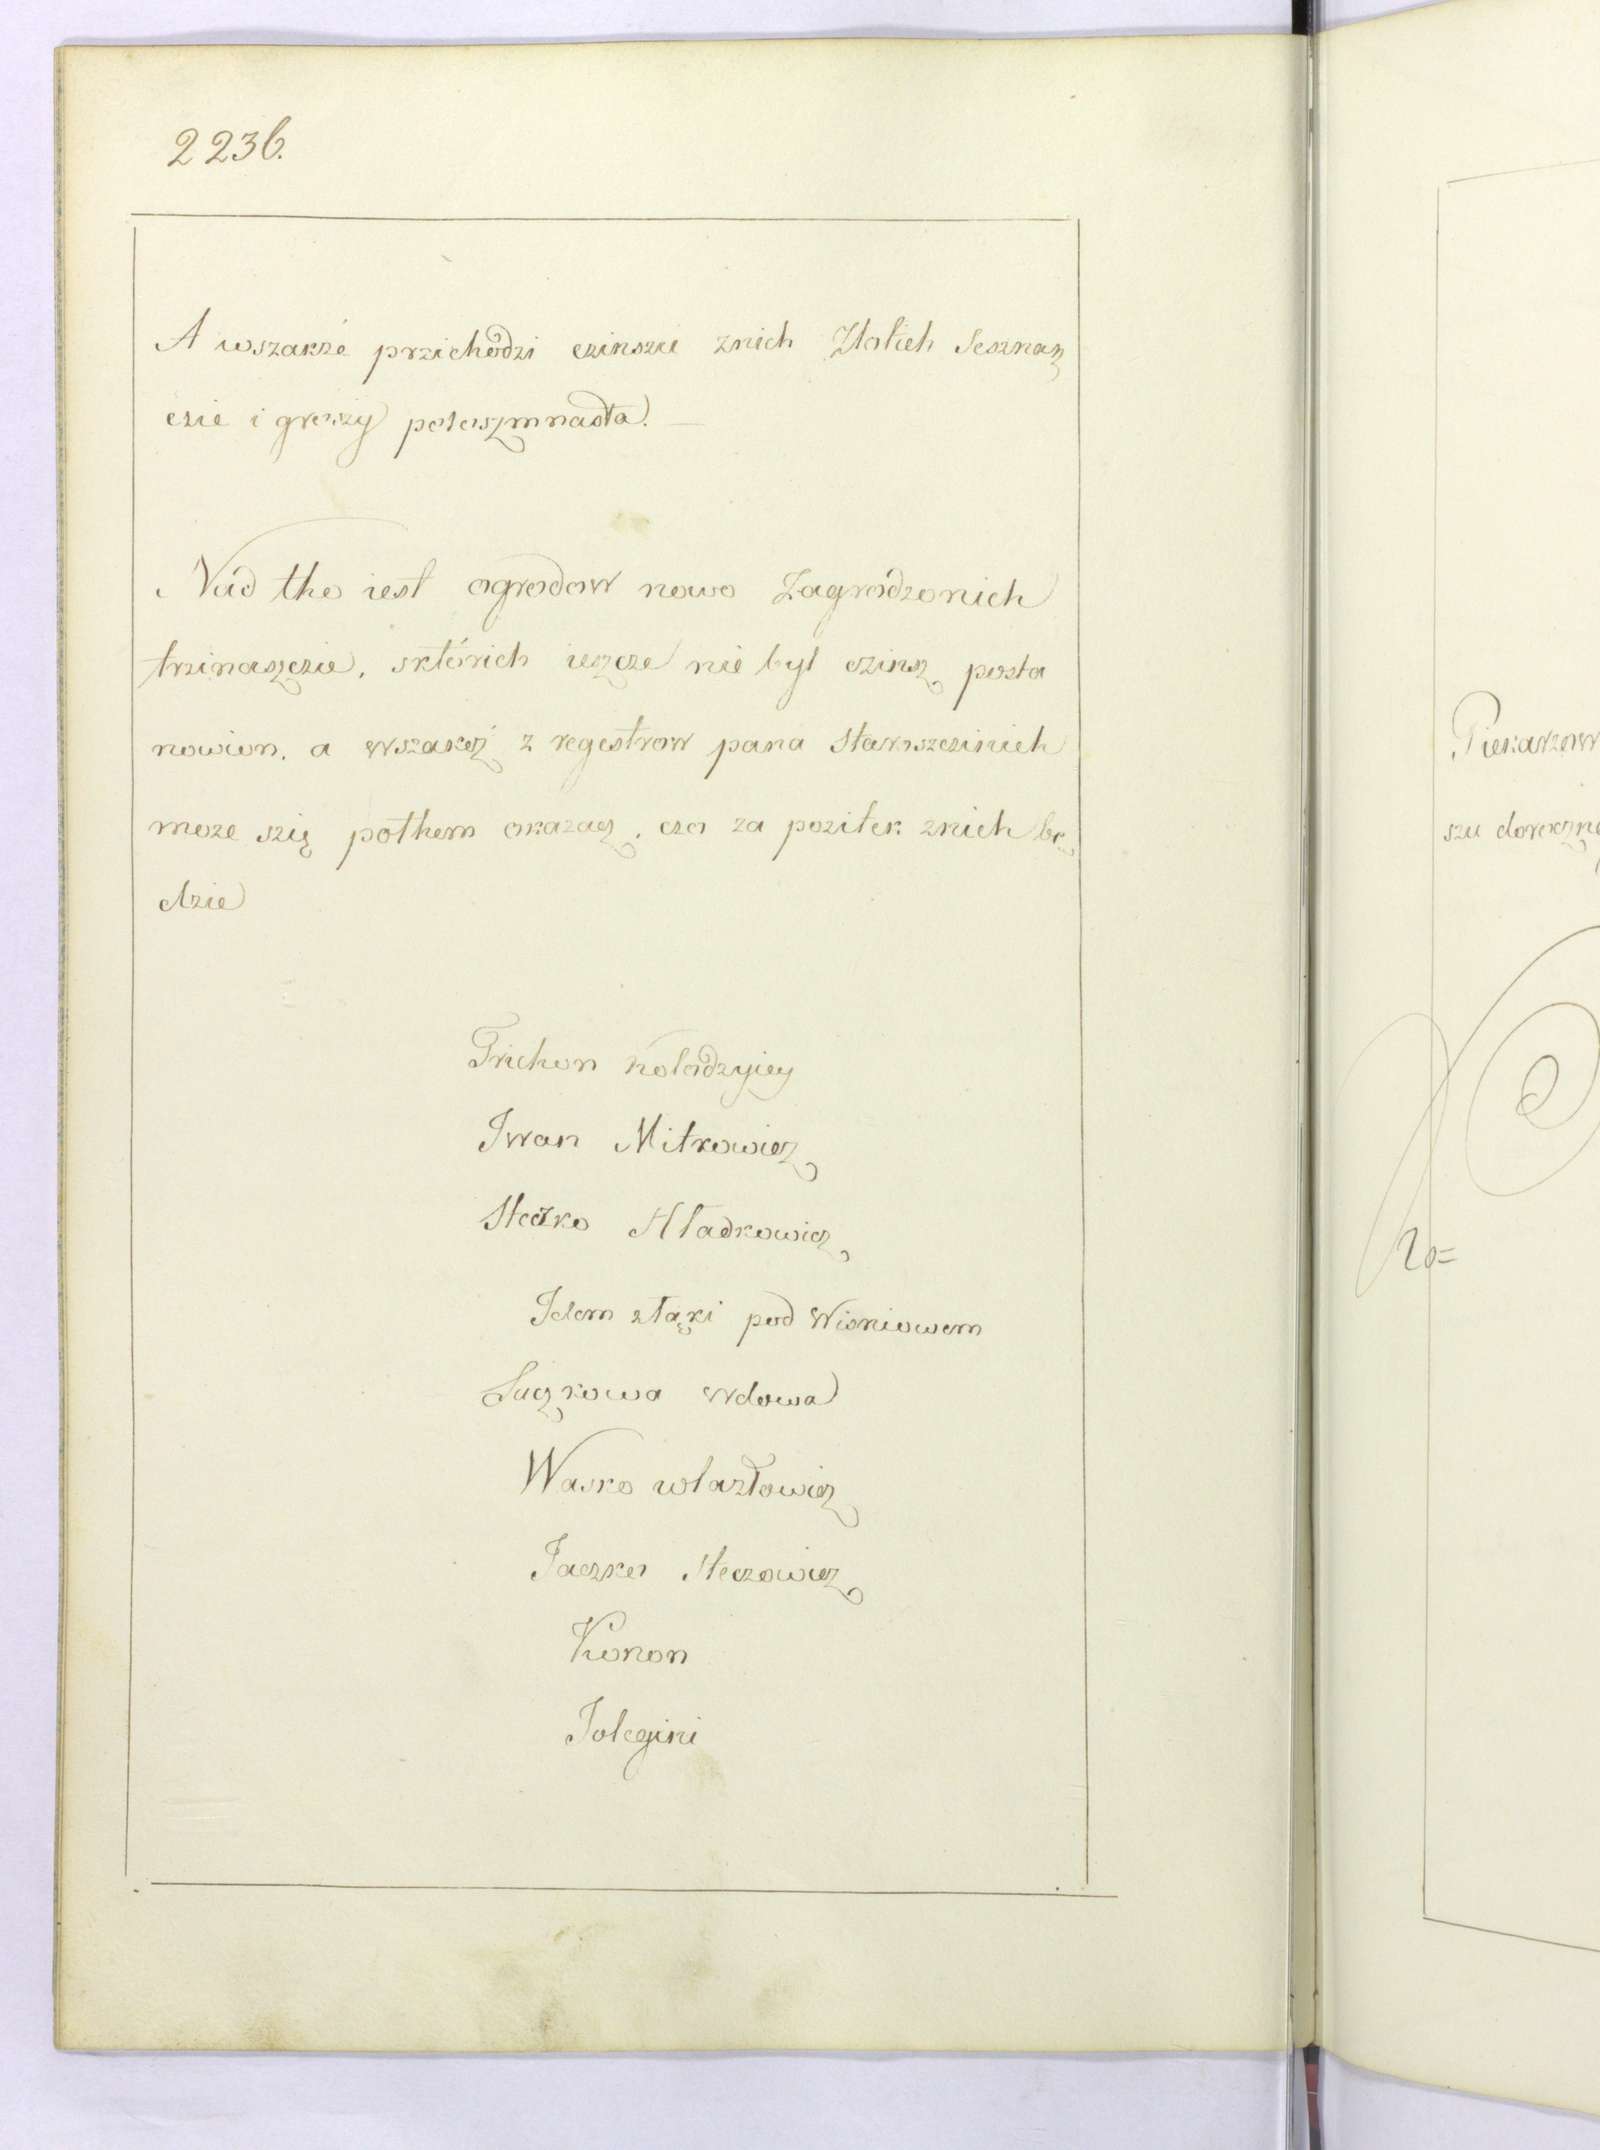 2236.
A wszakże przichodzi czinszu znich Zlotich Sesznaz
czie i groszy poloszmnasta.
Nad tho iest ogrodow nowo Zagrodzonich
trzinaszczie, sktorich ieszcze nie był czinsz posta
nowion, a wszakoz z regestrow pana Starosczinich
moze szię pothem okazacz, czo za pozitek znich bę
dzie
Trichon Kolodzyiey
Iwan Mitkowicz
Steczko Hladkowicz
Idem złąki pod Wisniowem
Luczkowa wdowa
Wasko wlazłowicz
Jaczko Steczowicz
Konon
Jolegini
Piekarzow
szu doroczne